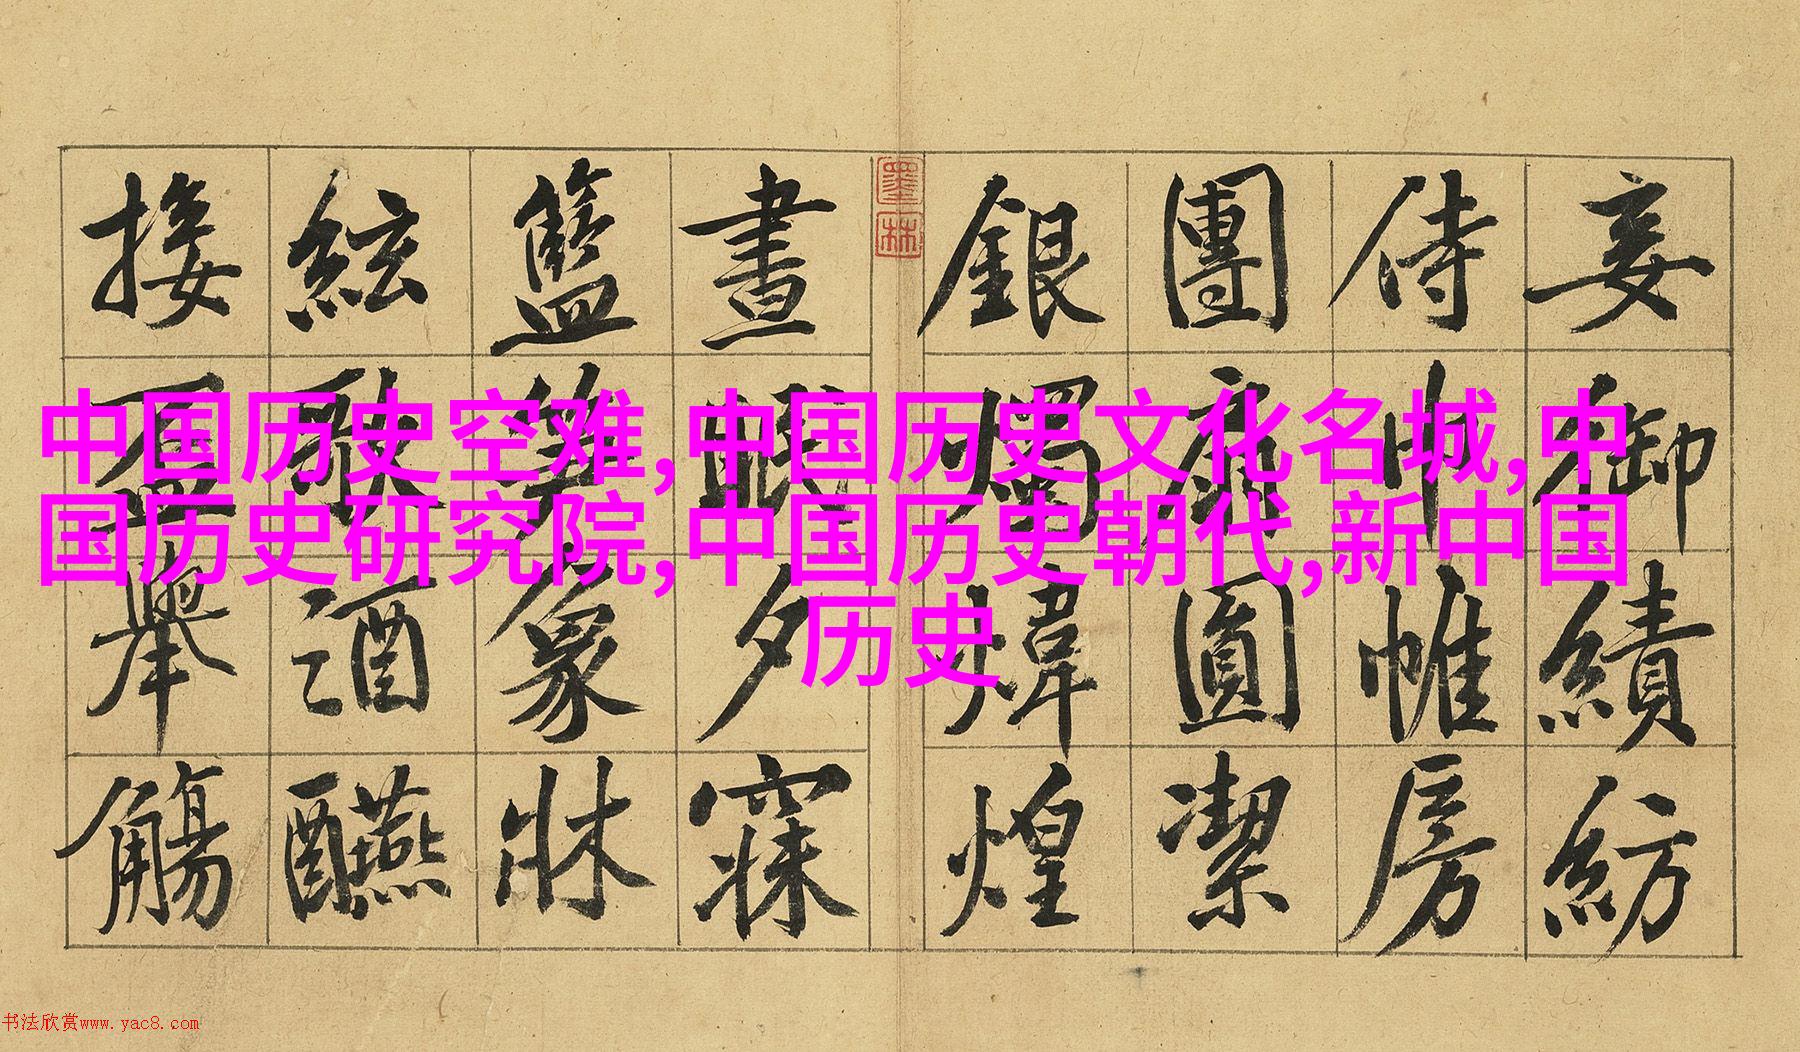 妾御績紡
侍巾帷房
團扇圓潔
銀燭煒煌
墨林
晝眠夕寐
籃筍象牀
絃歌酒醼
接盃舉觴
中国历史空难,中国历史文化名城,中
国历史研究院,中国历史朝代,新中国
历史
书法欣赏www.yac8.com